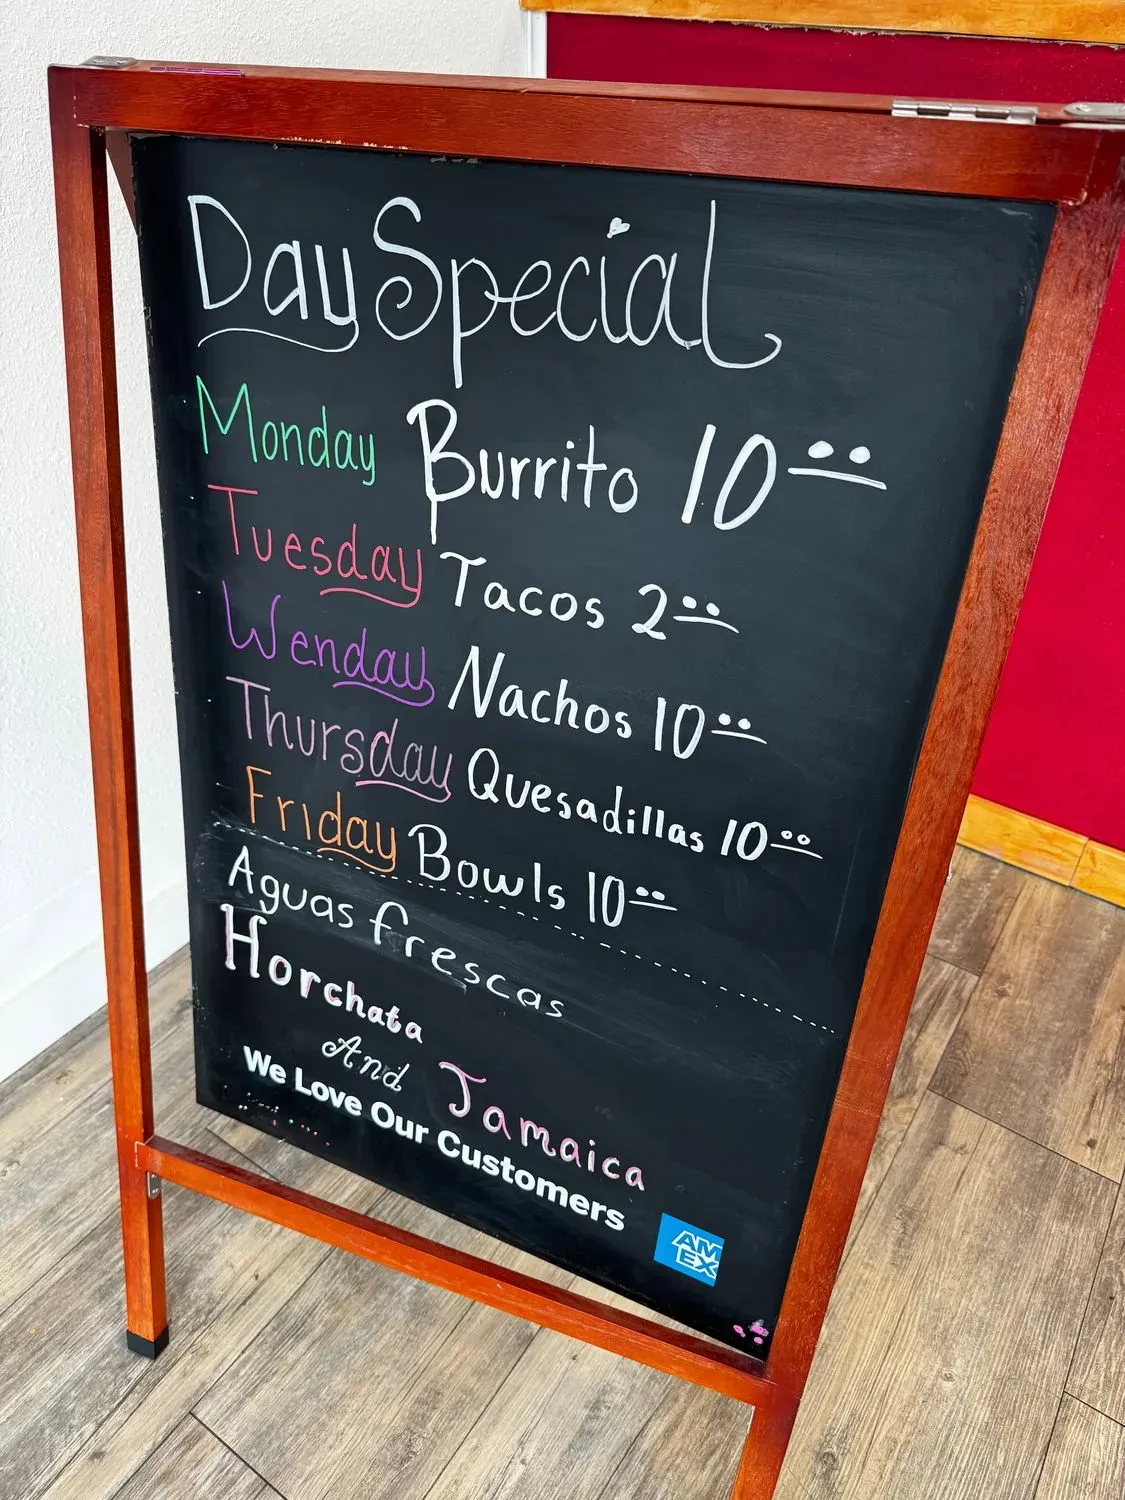 Day Special
Monday Burrito 1000
Tuesday Tacos 200
Wenday Nachos 1000
Thursday Quesadillas 1000
Friday Bowls 1000
Aguas frescas
Horchata
And Jamaica
We Love Our Customers
AM
EX